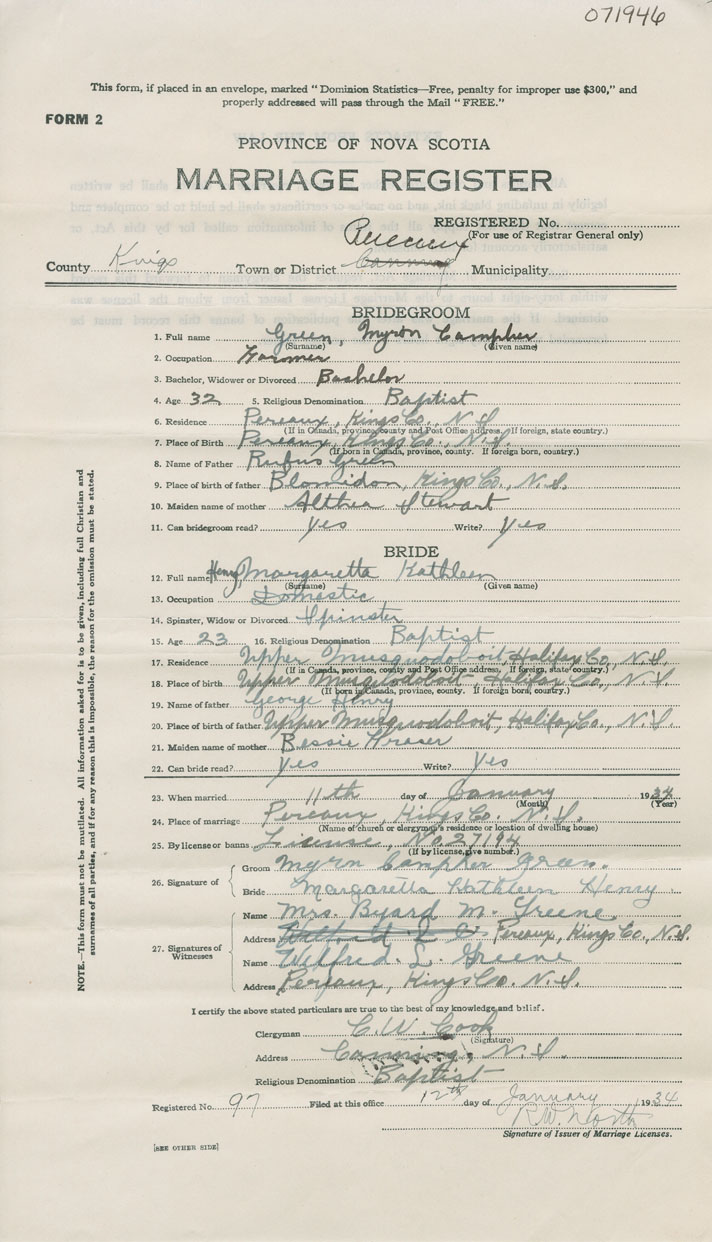 071946
This form, if placed in an envelope, marked "Dominion Statistics—Free, penalty for improper use $300," and
properly addressed will pass through the Mail "FREE."
FORM 2
PROVINCE OF NOVA SCOTIA
MARRIAGE REGISTER
REGISTERED No.
(For use of Registrar General only)
County Kings Town or District Canning Municipality
BRIDEGROOM
1. Full name Green, Myron Campher
(Surname) (Given name)
2. Occupation Farmer
3. Bachelor, Widower or Divorced Bachelor
4. Age 32 5. Religious Denomination Baptist
6. Residence Pereaux, Kings Co., N.S.
(If in Canada, province, county and Post Office address. If foreign, state country.)
7. Place of Birth Pereaux, Kings Co., N.S.
(If born in Canada, province, county. If foreign born, country.)
8. Name of Father Rufus Green
9. Place of birth of father Blomidon, Kings Co., N.S.
10. Maiden name of mother Althea Stewart
11. Can bridegroom read? Yes Write? Yes
BRIDE
12. Full name Henry, Margaretta Kathleen
(Surname) (Given name)
13. Occupation Domestic
14. Spinster, Widow or Divorced Spinster
15. Age 23 16. Religious Denomination Baptist
17. Residence Upper Musquodoboit, Halifax Co., N.S.
(If in Canada, province, county and Post Office address. If foreign, state country.)
18. Place of birth Upper Musquodoboit, Halifax Co., N.S.
(If born in Canada, province, county. If foreign born, country.)
19. Name of father George Henry
20. Place of birth of father Upper Musquodoboit, Halifax Co., N.S.
21. Maiden name of mother Bessie Fraser
22. Can bride read? Yes Write? Yes
23. When married 11th day of January 1934
(Month) (Year)
24. Place of marriage Pereaux, Kings Co. N.S.
(Name of church or clergyman's residence or location of dwelling house)
25. By license or banns License, No. 27194
(If by license, give number.)
26. Signature of
Groom Myron Campher Green.
Bride Margaretta Kathleen Henry
27. Signatures of Witnesses
Name Mrs. Byard M. Greene
Address Pereaux, Kings Co., N.S.
Name Wilfred L. Greene
Address Pereaux, Kings Co. N.S.
I certify the above stated particulars are true to the best of my knowledge and belief.
Clergyman C. W. Cook
(Signature)
Address Canning, N.S.
Religious Denomination Baptist
Registered No. 97 Filed at this office 12th day of January 1934
R.W. North
Signature of Issuer of Marriage Licenses.
[SEE OTHER SIDE]
NOTE.—This form must not be mutilated. All information asked for is to be given, including full Christian and
surnames of all parties, and if for any reason this is impossible, the reason for the omission must be stated.